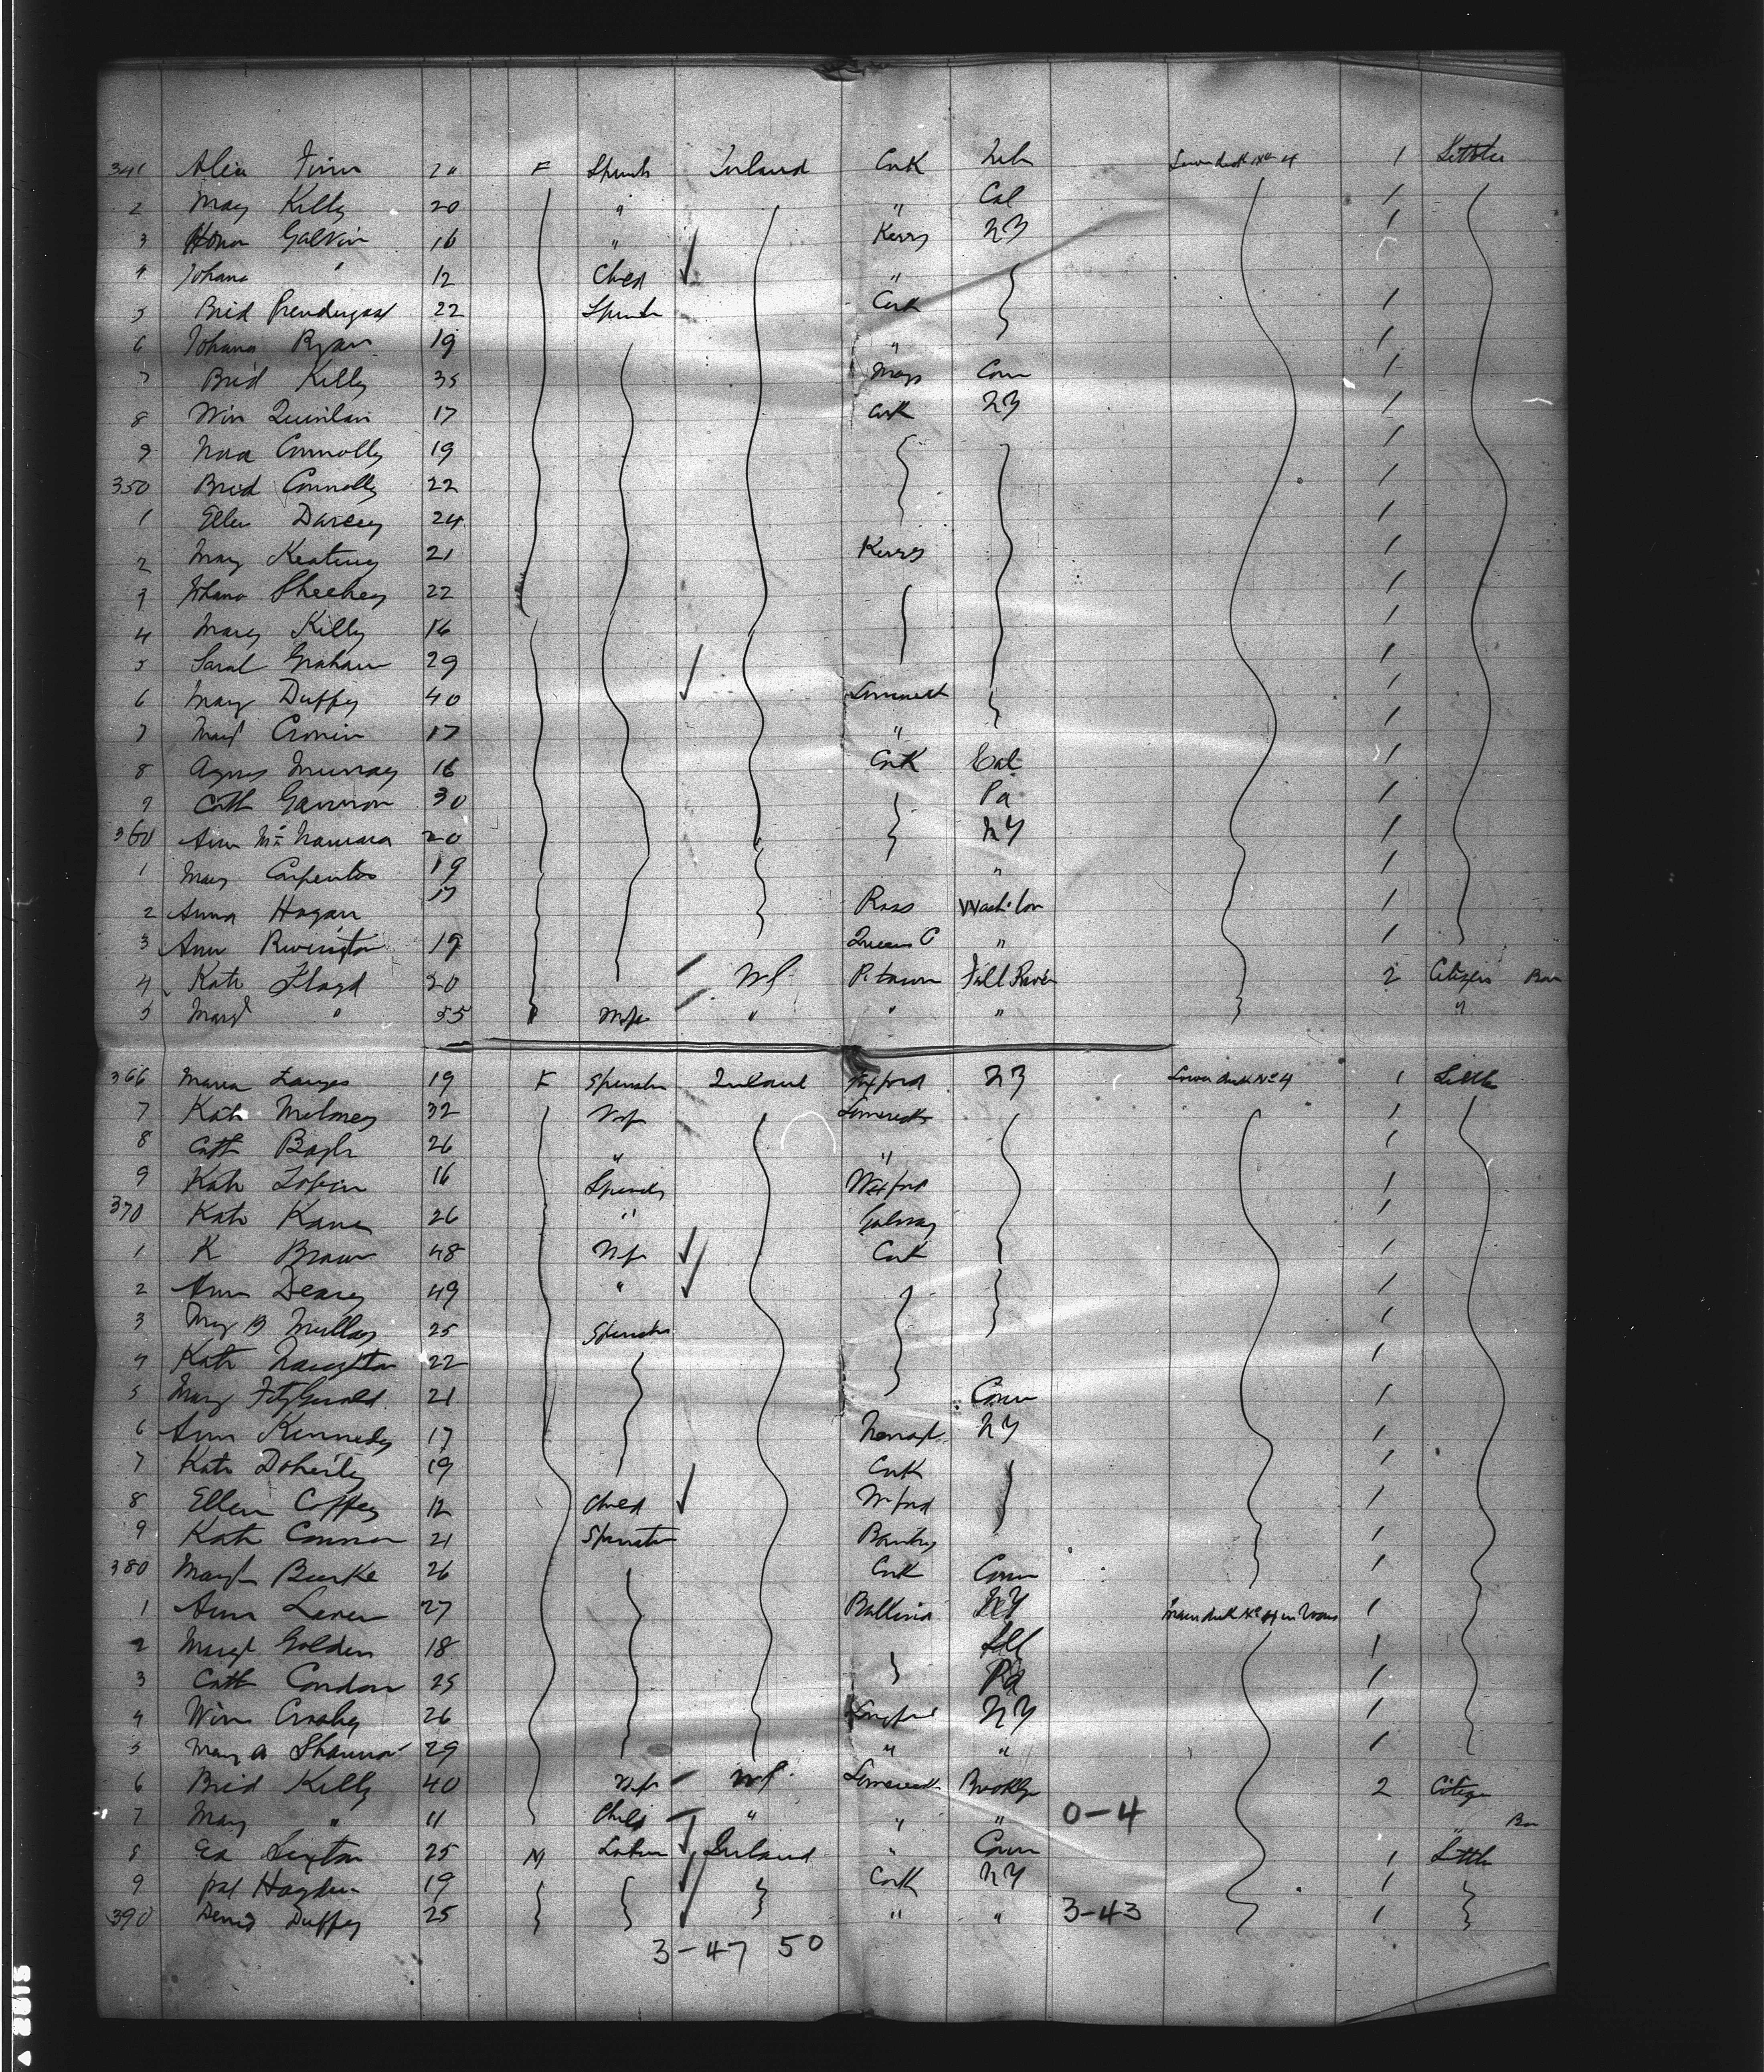 341 Alice Finn 20 F Spinster Ireland Cork Neb Lower deck No 4 1 Settler
2 Mary Killy 20 " " Cal 1
3 Honor Galvin 16 " Kerry NY 1
4 Johana " 12 Child "
5 Brid Prendergast 22 Spinster Cork 1
6 Johana Ryan 19 " 1
7 Brid Killy 35 Mayo Conn 1
8 Win Quinlan 17 Cork NY 1
9 Nora Connolly 19 1
350 Brid Connolly 22 1
1 Ellen Darcey 24 1
2 Mary Keating 21 Kerry 1
3 Johana Sheehey 22 1
4 Mary Killy 16 1
5 Sarah Graham 29 1
6 Mary Duffy 40 Limerick 1
7 Margt Cronin 17 " 1
8 Agnes Murray 16 Cork Cal 1
9 Cath Gannon 30 Pa 1
360 Ann McNamara 20 NY 1
1 Mary Carpenter 19 " 1
2 Anna Hogan 17 Ross Washiton 1
3 Ann Rivington 19 Queens C " 1
4 Kate Lloyd 20 US P. town Fall River 2 Citizen
5 Margt " 55 Wife " " " "
366 Maria 19 F Spinster Ireland Wexford NY Lower deck No 4 1 Settler
7 Kate 32 Wife Limerick 1
8 Cath 26 " " 1
9 Kate Tobin 16 Spinster Wexford 1
370 Kate Kane 26 " Galway 1
1 K Brown 48 Wife Cork 1
2 Ann Deasy 49 " 1
3 Mary B Mullay 25 Spinster 1
4 Kate Naughton 22 1
5 Mary FitzGerald 21 Conn 1
6 Ann Kennedy 17 NY 1
7 Kate Doherty 19 Cork 1
8 Ellen Coffey 12 Child Wford 1
9 Kate Connor 21 Spinster Bantry 1
380 Margt Burke 26 Cork Conn 1
1 Ann 27 Ballina NY 1
2 Margt Golden 18 Ill 1
3 Cath Condon 25 Pa 1
4 Winn Crosby 26 Longford NY 1
5 Mary A Shannon 29 " " 1
6 Brid Killy 40 Wife US Limerick Brooklyn 2 Citizen
7 Mary " 11 Child " " " 0-4 "
8 Ed Sexton 25 M Labor Ireland " Conn 1 Settler
9 Pat Hayden 19 Cork NY 1
390 Denis Duffy 25 " " 3-43 1
3-47 50